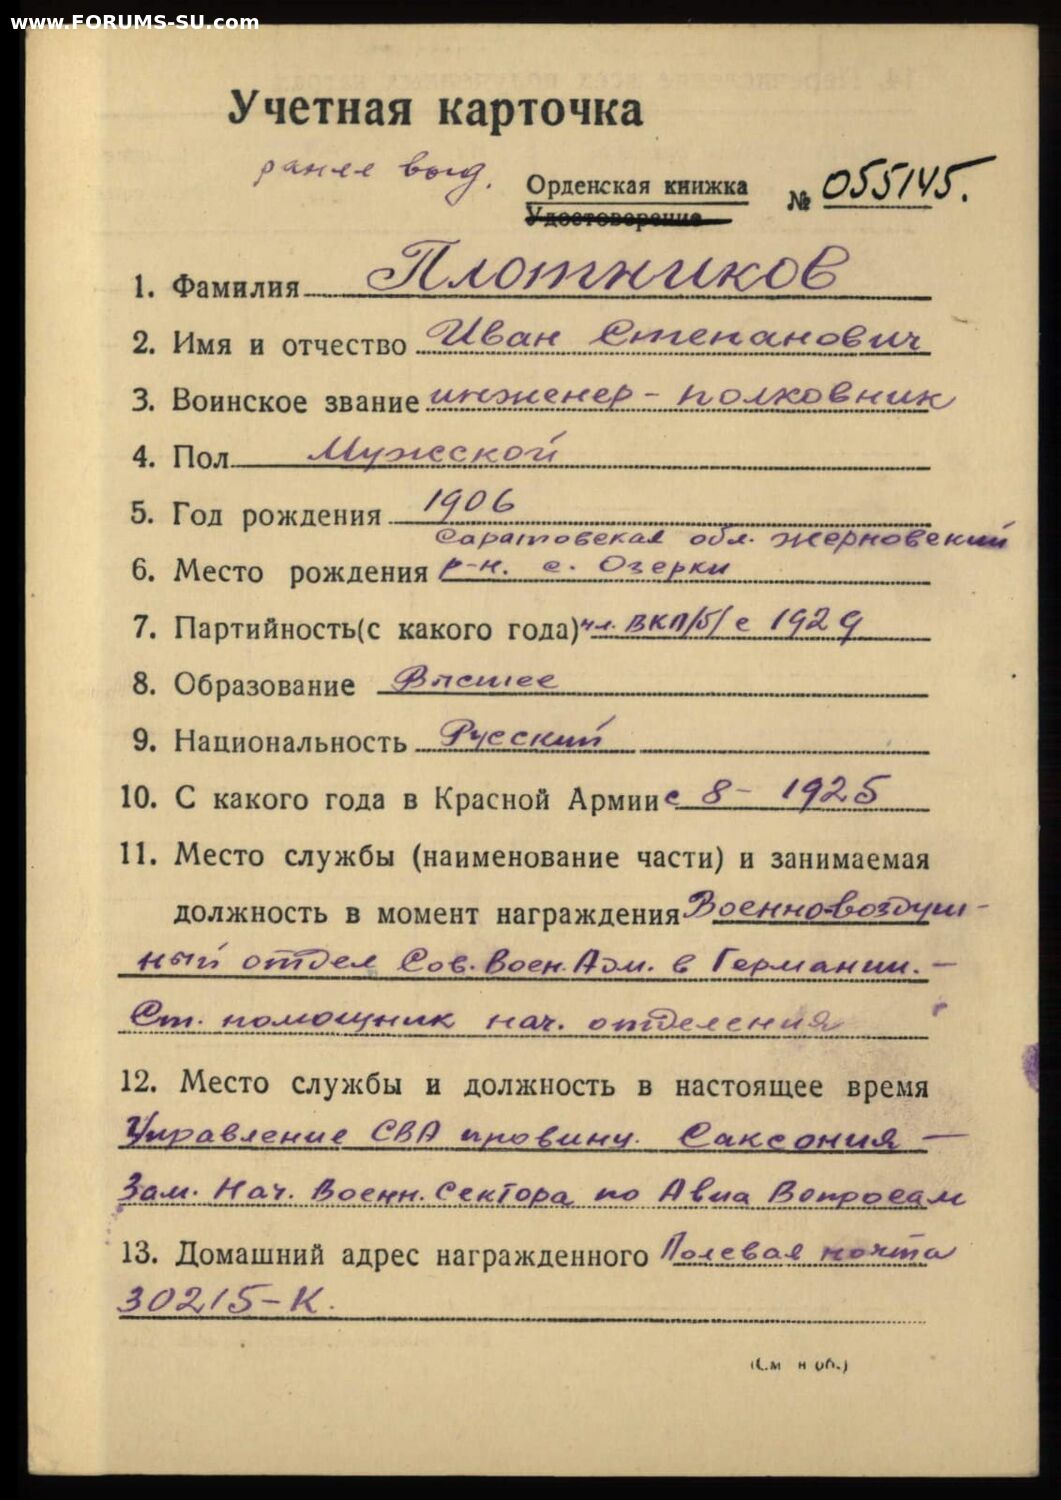 www.FORUMS-SU.com
Учетная карточка
ранее выд.
Орденская книжка № 055145.
Удостоверение
1. Фамилия Плотников
2. Имя и отчество Иван Степанович
3. Воинское звание инженер-полковник
4. Пол Мужской
5. Год рождения 1906
Саратовская обл. Жерновский
6. Место рождения р-н. с. Озерки
7. Партийность(с какого года) чл. ВКП/б/ с 1929
8. Образование Высшее
9. Национальность Русский
10. С какого года в Красной Армии с 8 - 1925
11. Место службы (наименование части) и занимаемая
должность в момент награждения Военно-воздуш-
ный отдел Сов. Воен. Адм. в Германии. -
Ст. помощник нач. отделения
12. Место службы и должность в настоящее время
Управление СВА провинц. Саксония -
Зам. Нач. Военн. Сектора по Авиа Вопросам
13. Домашний адрес награжденного Полевая почта
30215-К.
(См н об.)